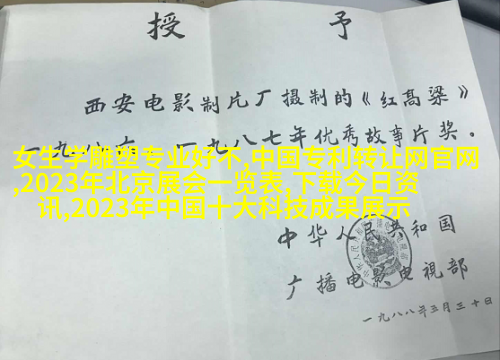 授 予
西安电影制片厂摄制的《红高粱》
一九八七年优秀故事片奖。
女生学雕塑专业好不,中国专利转让网官网
,2023年北京展会一览表,下载今日资
讯,2023年中国十大科技成果展示
中华人民共和国
广播电影电视部
一九八八年三月三十日